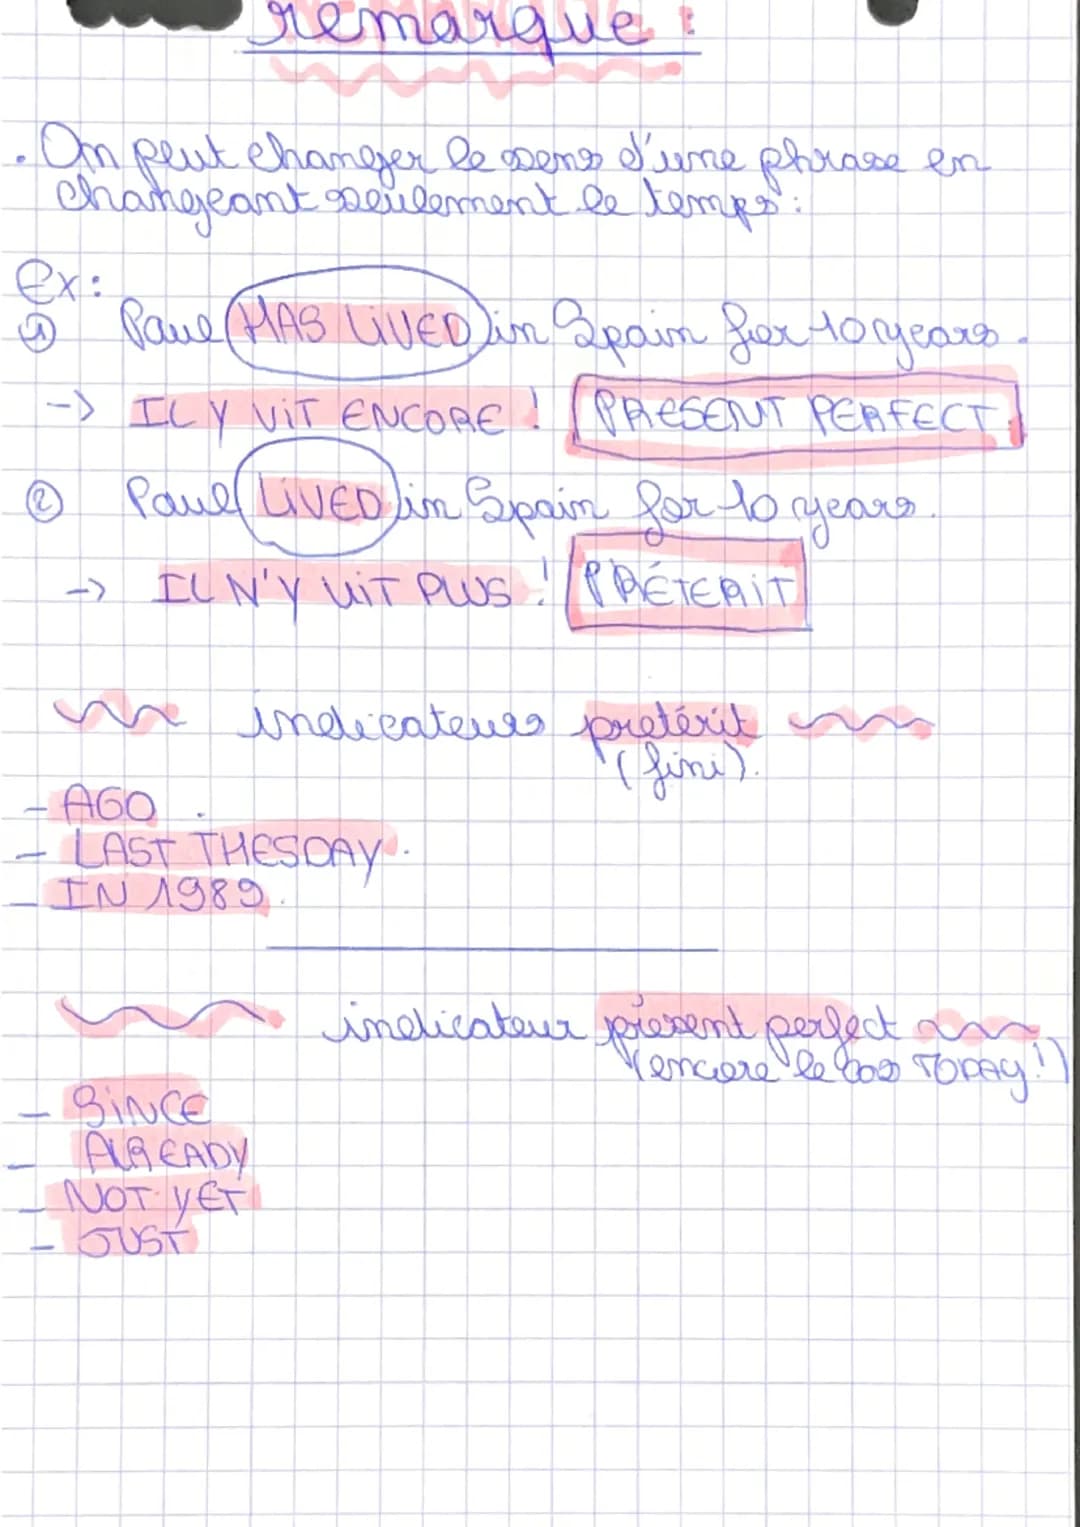 remarque :
. On peut changer le sens d'une phrase en
changeant seulement le temps :
Ex:
① Paul HAS LIVED in Spain for 10 years.
-> IL Y VIT ENCORE ! PRESENT PERFECT
② Paul LIVED in Spain for 10 years.
-> IL N'Y VIT PLUS ! PRÉTERIT
indicateurs pretérit
(fini).
- AGO .
- LAST THESDAY.
- IN 1989.
indicateur présent perfect
(encore le cas TODAY!)
- SINCE
- ALREADY
- NOT YET
- JUST